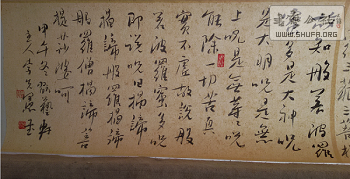 知般若波羅
多是大神咒
是大明咒是無
上咒是無等咒
能除一切苦真
實不虛故說般
若波羅蜜多咒
即說咒曰揭諦
揭諦般羅揭諦
般羅僧揭諦菩
提薩婆訶
甲午冬
主人
北京
WWW.SHUFA.ORG